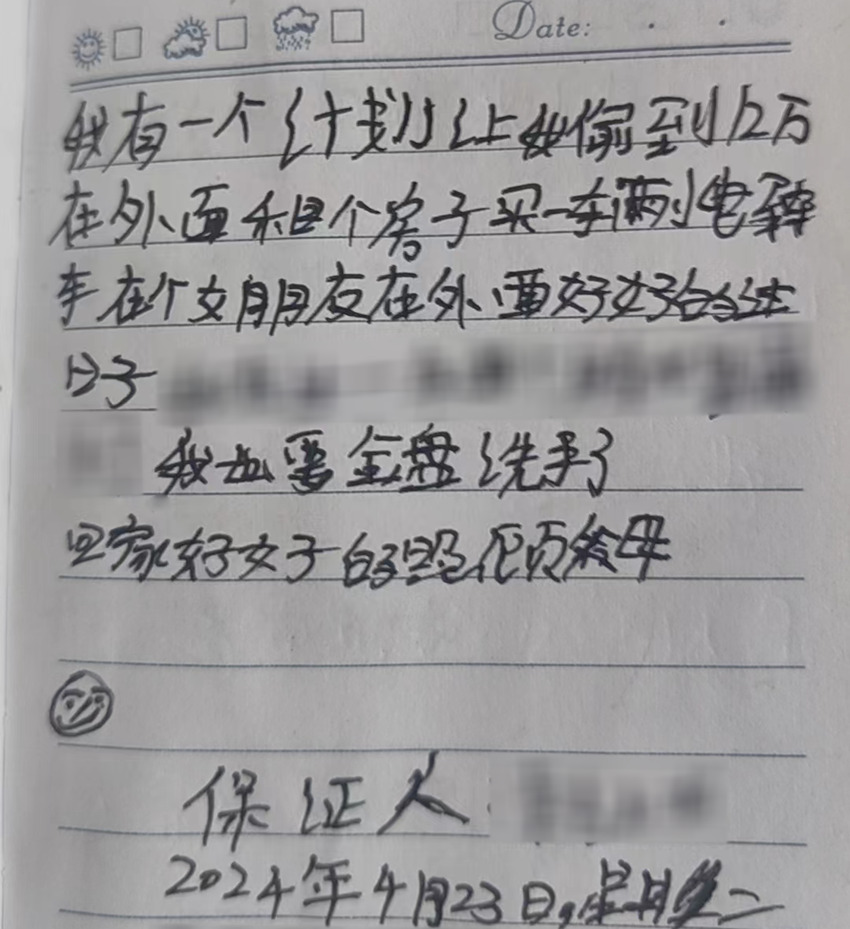 Date:
我有一个计划让我偷到12万
在外面租个房子买一车辆小电
车在个女朋友在外面好好过
日子
我也要金盆洗手了
回家好好的 父母
保证人
2024年4月23日,星期二